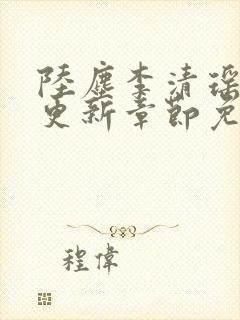 陸塵李清瑶
更新章節免
程偉